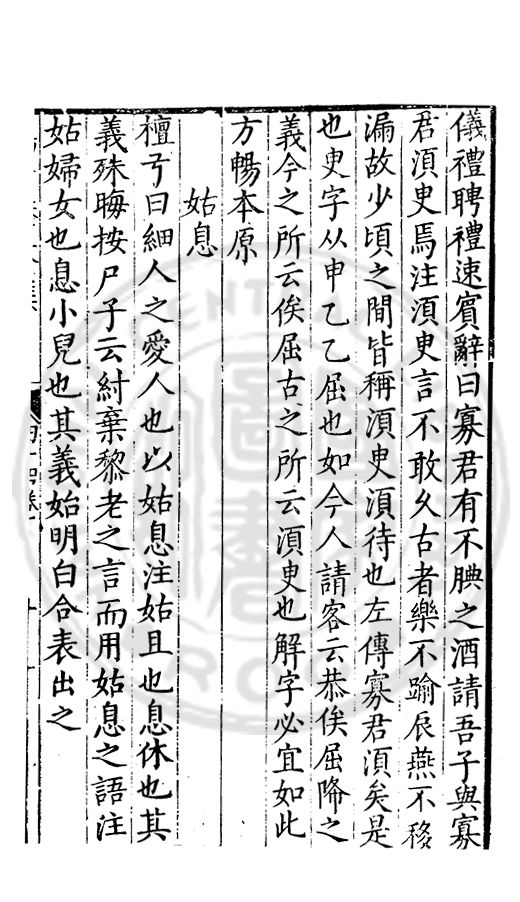 儀禮聘禮速賓辭曰寡君有不腆之酒請吾子與寡
君湏㬰焉注湏㬰言不敢久古者樂不踰辰燕不移
漏故少頃之間皆稱湏㬰湏待也左傳寡君湏矣是
也㬰字从申乙乙屈也如今人請客云恭俟屈降之
義今之所云俟屈古之所云湏㬰也解字必宜如此
方暢本原
姑息
檀弓曰細人之愛人也以姑息注姑且也息休也其
義殊晦按尸子云紂棄黎老之言而用姑息之語注
姑婦女也息小兒也其義始明白合表出之